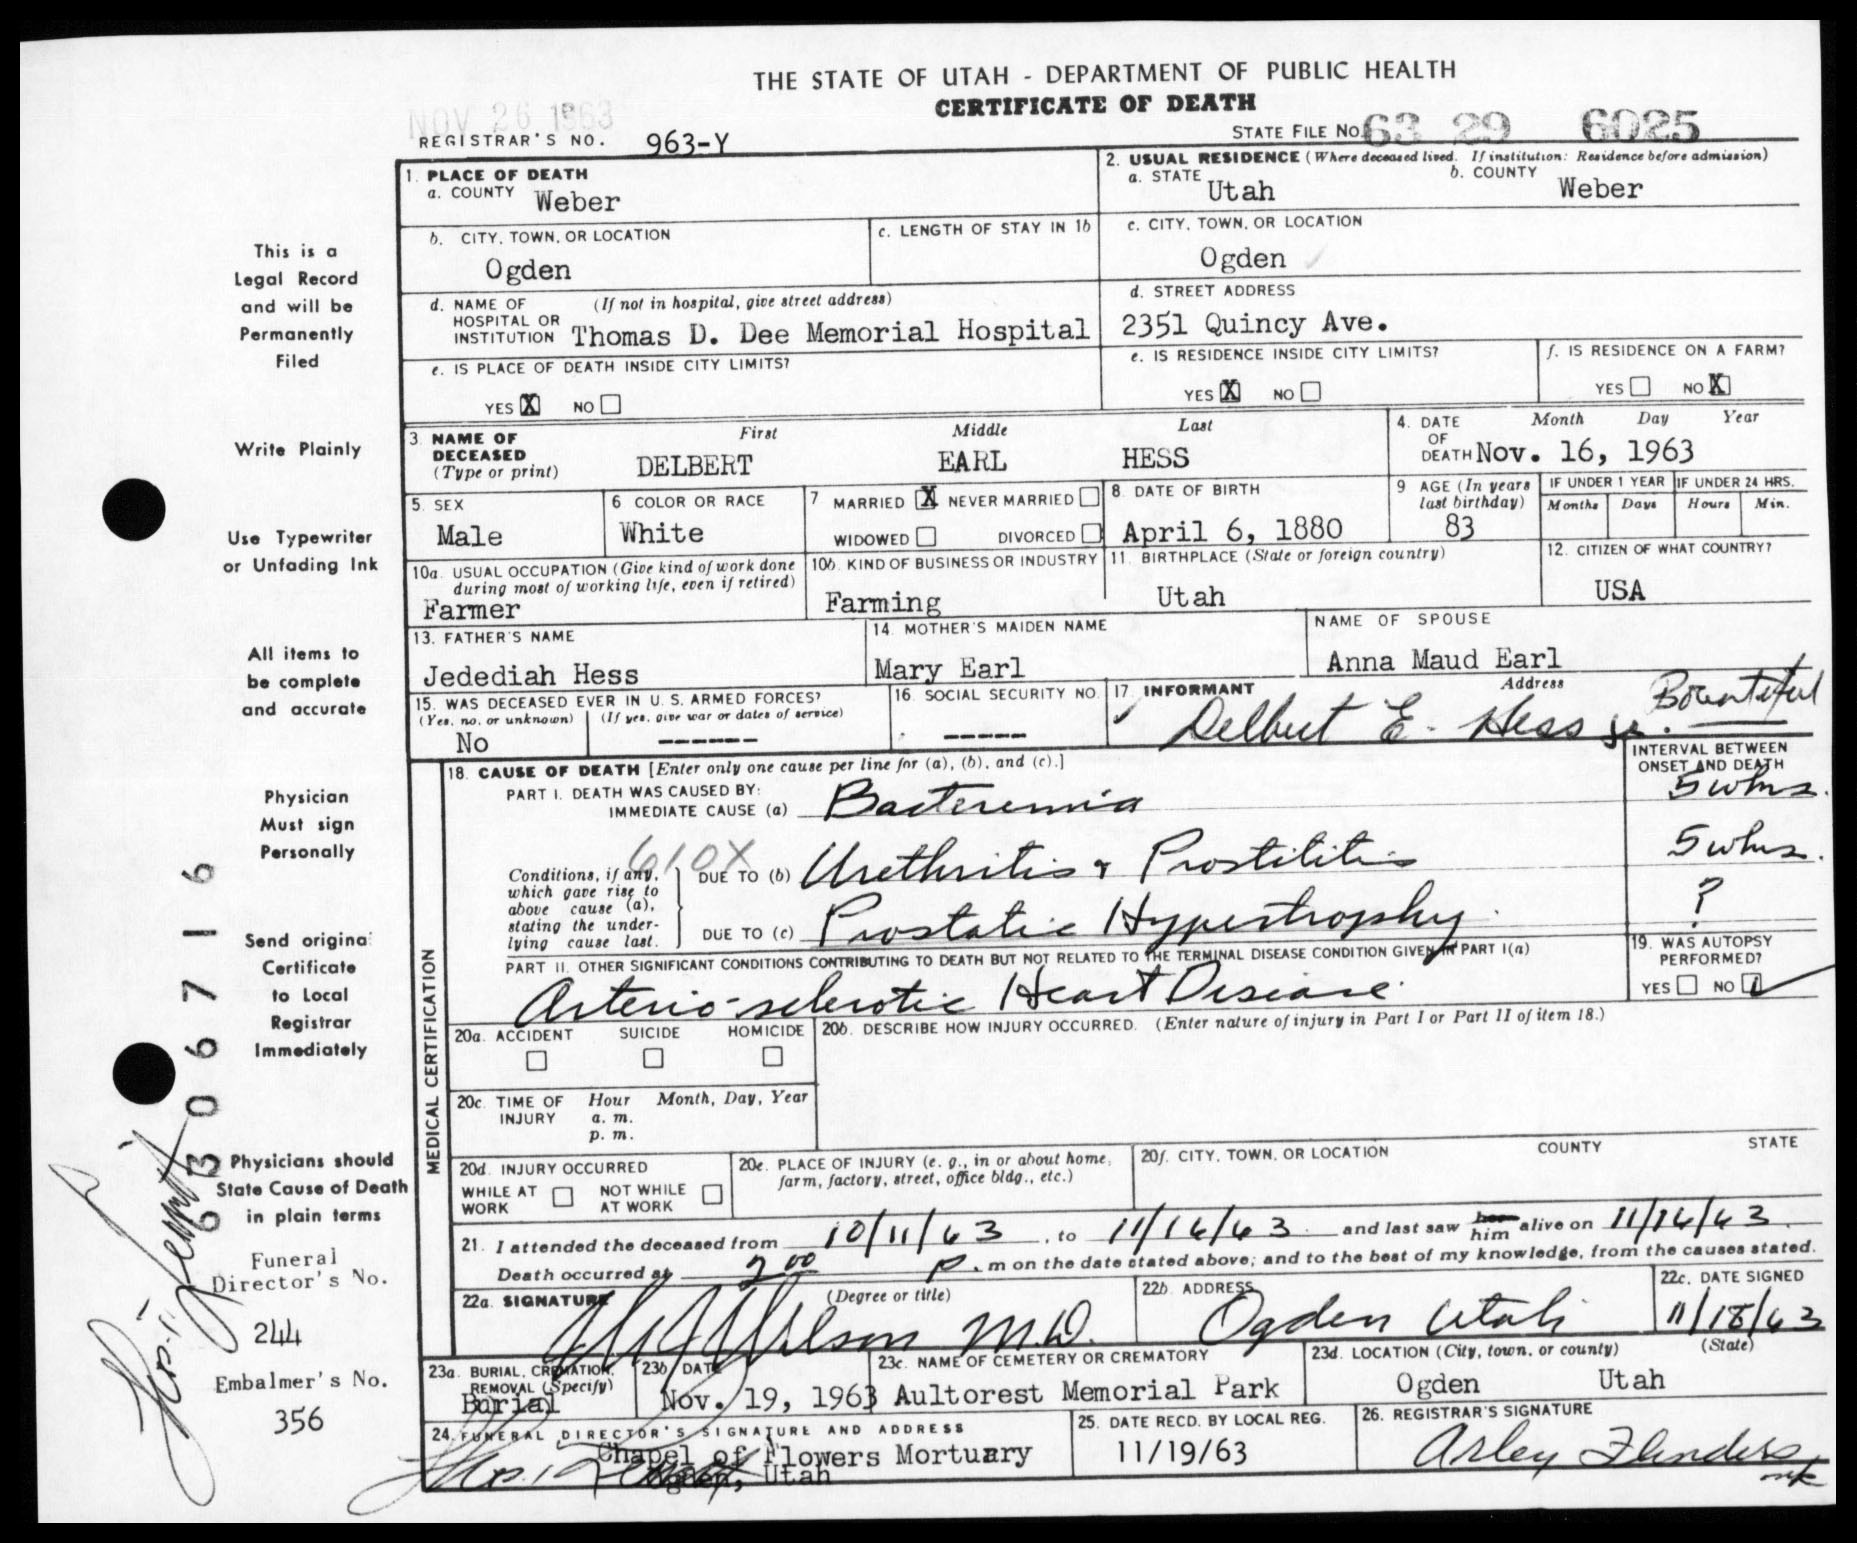 THE STATE OF UTAH - DEPARTMENT OF PUBLIC HEALTH
CERTIFICATE OF DEATH
NOV 26 1963
REGISTRAR'S NO. 963-Y
STATE FILE NO. 63 29 6025
1. PLACE OF DEATH
a. COUNTY Weber
2. USUAL RESIDENCE (Where deceased lived. If institution: Residence before admission)
a. STATE Utah b. COUNTY Weber
b. CITY, TOWN, OR LOCATION
Ogden
c. LENGTH OF STAY IN 1b
c. CITY, TOWN, OR LOCATION
Ogden
d. NAME OF HOSPITAL OR INSTITUTION (If not in hospital, give street address)
Thomas D. Dee Memorial Hospital
d. STREET ADDRESS
2351 Quincy Ave.
e. IS PLACE OF DEATH INSIDE CITY LIMITS?
YES X NO
e. IS RESIDENCE INSIDE CITY LIMITS?
YES X NO
f. IS RESIDENCE ON A FARM?
YES NO X
3. NAME OF DECEASED (Type or print)
First Middle Last
DELBERT EARL HESS
4. DATE OF DEATH Month Day Year
Nov. 16, 1963
5. SEX
Male
6 COLOR OR RACE
White
7 MARRIED X NEVER MARRIED
WIDOWED DIVORCED
8. DATE OF BIRTH
April 6, 1880
9 AGE (In years last birthday)
83
IF UNDER 1 YEAR
Months Days
IF UNDER 24 HRS.
Hours Min.
10a. USUAL OCCUPATION (Give kind of work done during most of working life, even if retired)
Farmer
10b. KIND OF BUSINESS OR INDUSTRY
Farming
11. BIRTHPLACE (State or foreign country)
Utah
12. CITIZEN OF WHAT COUNTRY?
USA
13. FATHER'S NAME
Jedediah Hess
14. MOTHER'S MAIDEN NAME
Mary Earl
NAME OF SPOUSE
Anna Maud Earl
15. WAS DECEASED EVER IN U. S. ARMED FORCES?
(Yes, no, or unknown) (If yes, give war or dates of service)
No ------
16. SOCIAL SECURITY NO.
-----
17. INFORMANT Address
Delbert E. Hess Jr. Bountiful
18. CAUSE OF DEATH [Enter only one cause per line for (a), (b), and (c).]
INTERVAL BETWEEN ONSET AND DEATH
PART I. DEATH WAS CAUSED BY:
IMMEDIATE CAUSE (a) Bacteremia 5 whs.
610X
Conditions, if any, which gave rise to above cause (a), stating the underlying cause last.
DUE TO (b) Urethritis & Prostititis 5 whs.
DUE TO (c) Prostatic Hypertrophy ?
PART II. OTHER SIGNIFICANT CONDITIONS CONTRIBUTING TO DEATH BUT NOT RELATED TO THE TERMINAL DISEASE CONDITION GIVEN IN PART I(a)
Arterio-sclerotic Heart Disease
19. WAS AUTOPSY PERFORMED?
YES NO
20a. ACCIDENT SUICIDE HOMICIDE
20b. DESCRIBE HOW INJURY OCCURRED. (Enter nature of injury in Part I or Part II of item 18.)
20c. TIME OF INJURY Hour Month, Day, Year
a. m.
p. m.
20d. INJURY OCCURRED
WHILE AT WORK NOT WHILE AT WORK
20e. PLACE OF INJURY (e. g., in or about home, farm, factory, street, office bldg., etc.)
20f. CITY, TOWN, OR LOCATION COUNTY STATE
21. I attended the deceased from 10/11/63, to 11/16/63 and last saw her him alive on 11/16/63.
Death occurred at 2 00 P. m on the date stated above; and to the best of my knowledge, from the causes stated.
22a. SIGNATURE (Degree or title)
Wilson M.D.
22b. ADDRESS
Ogden Utah
22c. DATE SIGNED
11/18/63
23a. BURIAL, CREMATION, REMOVAL (Specify)
Burial
23b DATE
Nov. 19, 1963
23c. NAME OF CEMETERY OR CREMATORY
Aultorest Memorial Park
23d. LOCATION (City, town, or county) (State)
Ogden Utah
24. FUNERAL DIRECTOR'S SIGNATURE AND ADDRESS
Chapel of Flowers Mortuary
Ogden, Utah
25. DATE RECD. BY LOCAL REG.
11/19/63
26. REGISTRAR'S SIGNATURE
Arley Flinders
mk
MEDICAL CERTIFICATION
This is a
Legal Record
and will be
Permanently
Filed
Write Plainly
Use Typewriter
or Unfading Ink
All items to
be complete
and accurate
Physician
Must sign
Personally
Send original
Certificate
to Local
Registrar
Immediately
Physicians should
State Cause of Death
in plain terms
Funeral
Director's No.
244
Embalmer's No.
356
63 067 16